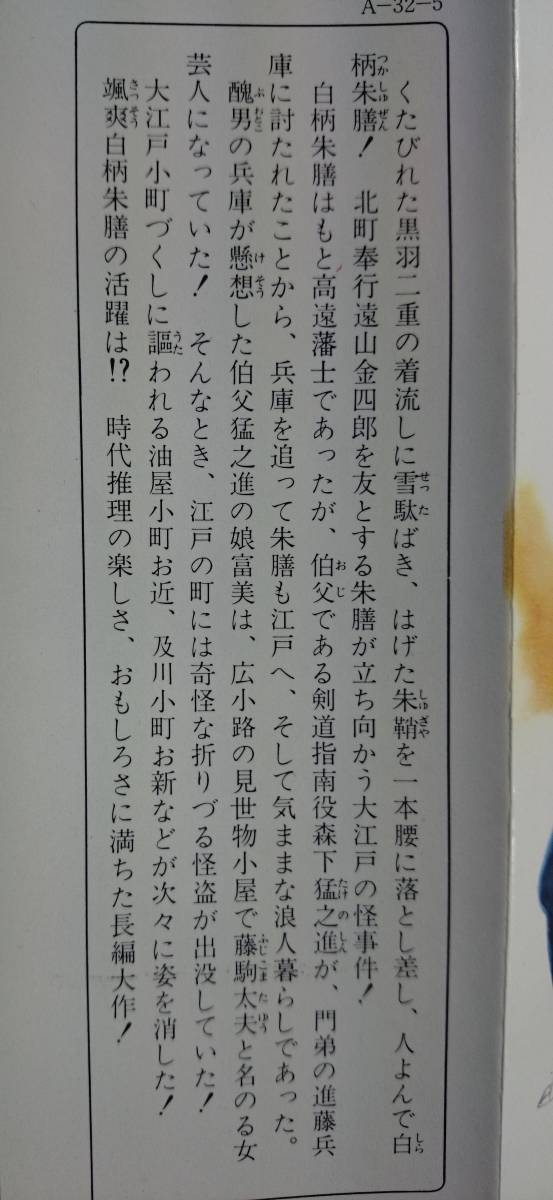 A-32-5
くたびれた黒羽二重の着流しに雪駄ばき、はげた朱鞘を一本腰に落とし差し、人よんで白
柄朱膳！　北町奉行遠山金四郎を友とする朱膳が立ち向かう大江戸の怪事件！
白柄朱膳はもと高遠藩士であったが、伯父である剣道指南役森下猛之進が、門弟の進藤兵
庫に討たれたことから、兵庫を追って朱膳も江戸へ、そして気ままな浪人暮らしであった。
醜男の兵庫が懸想した伯父猛之進の娘富美は、広小路の見世物小屋で藤駒太夫と名のる女
芸人になっていた！　そんなとき、江戸の町には奇怪な折りづる怪盗が出没していた！
大江戸小町づくしに謳われる油屋小町お近、及川小町お新などが次々に姿を消した！
颯爽白柄朱膳の活躍は!?　時代推理の楽しさ、おもしろさに満ちた長編大作！